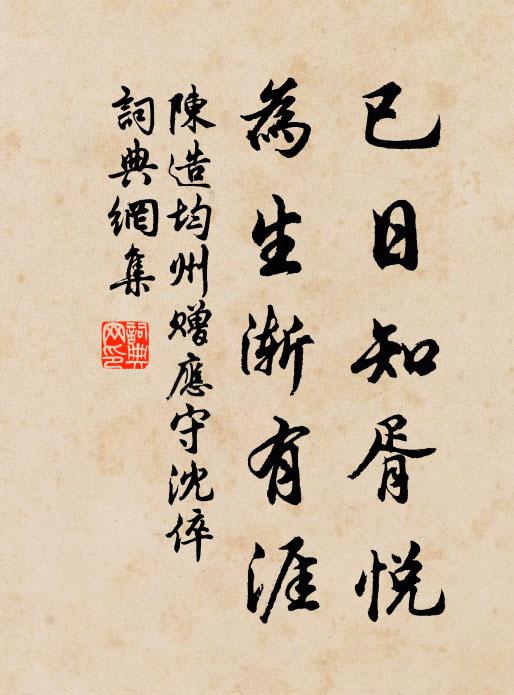 已日知胥悦
為生漸有涯
陳造均州贈應守沈倅
詞典網集
詞典網印